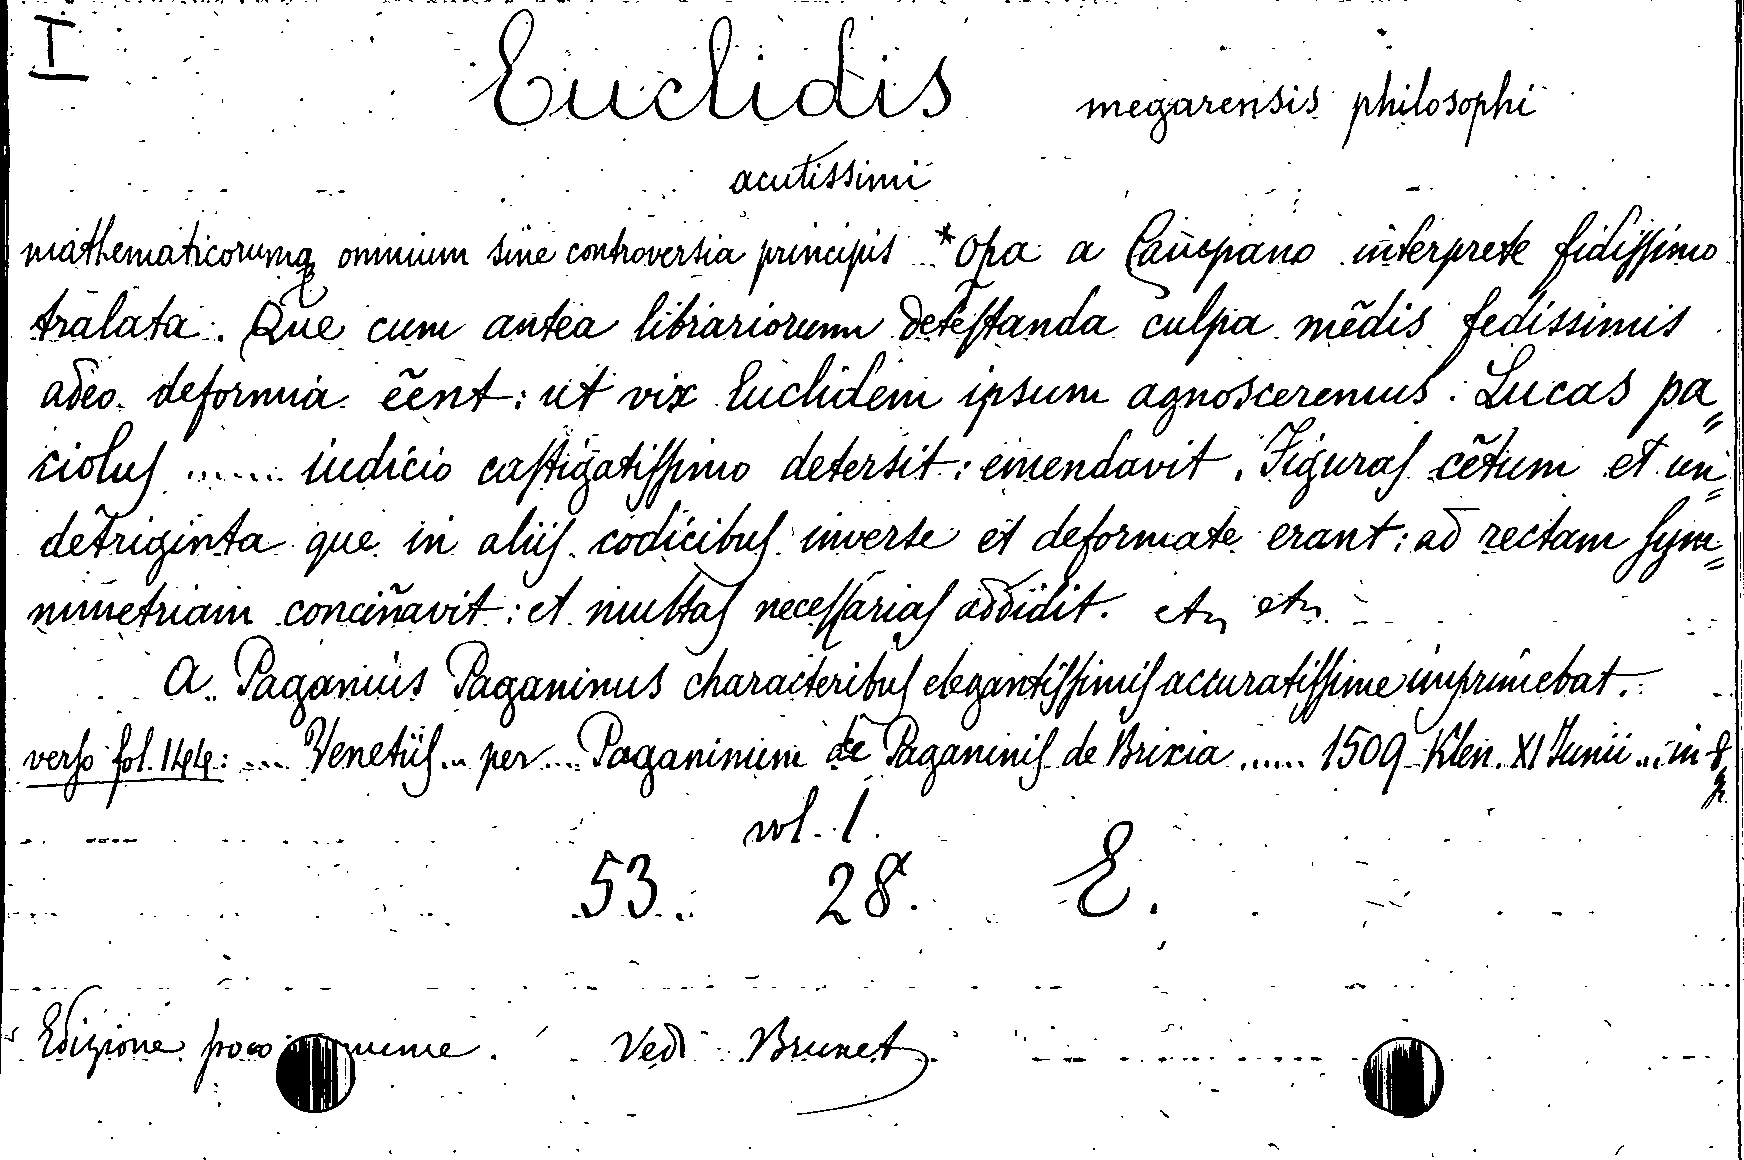 I
Euclidis megarensis philosophi
acutissimi
mathematicorumq omnium sine controversia principis *Opa a Cãmpano interprete fidissimo
trãlata. Que cum antea librariorum detestanda culpa mẽdis fedissimis
adeo deformia eẽnt: ut vix Euclidem ipsum agnosceremus. Lucas pa„
ciolus ...... iudicio castigatissimo detersit: emendavit. Figuras cẽtum et un=
detriginta que in aliis codicibus inverse et deformate erant: ad rectam sym=
metriam conciñavit: et multas necessarias addidit. etc etc
A. Paganius Paganinus characteribus elegantissimis accuratissime imprimebat.
verso fol. 144: .... Venetiis.. per.... Paganinum de Paganinis de Brixia ...... 1509 Klen. XI Junii ... in f.
vol. 1.
53. 28. E.
Edizione poco Vedi Brunet